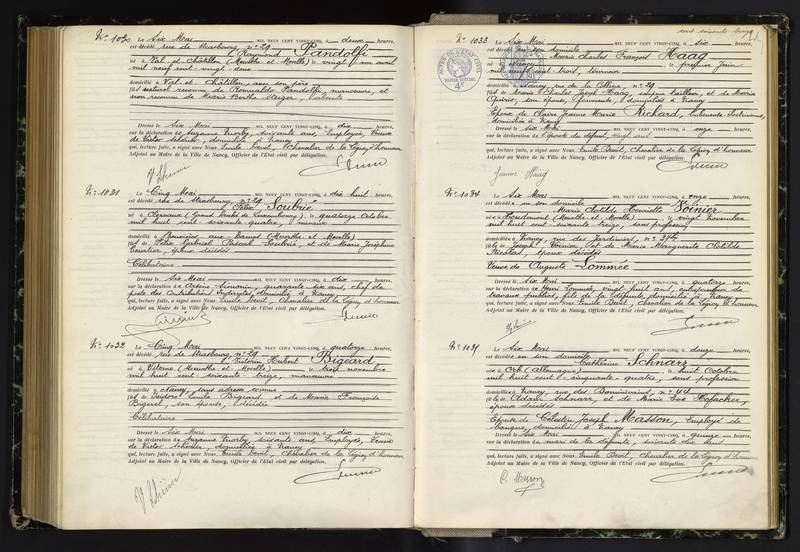 N° 1030 Le Six Mai MIL NEUF CENT VINGT-CINQ, à deux heures,
est décédé rue de Strasbourg n° 29
Raymond Pandolfi
né à Val et Châtillon (Meurthe et Moselle) le vingt un avril
mil neuf cent vingt deux
domicilié à Val et Châtillon, avec son père
fils naturel reconnu de Romualdo Pandolfi, manoeuvre, et
non reconnu de Marie Berthe
Dressé le Six Mai MIL NEUF CENT VINGT-CINQ, à dix heures,
sur la déclaration de Suzanne soixante ans, Employée, Veuve
de Victor domiciliée à Nancy
qui, lecture faite, a signé avec Nous Emile Devit, Chevalier de la Légion d'honneur
Adjoint au Maire de la Ville de Nancy, Officier de l'Etat civil par délégation.
N° 1031 Le Cinq Mai MIL NEUF CENT VINGT-CINQ, à dix huit heures,
est décédé rue de Strasbourg n° 29
Soubrié
né à Clervaux (Grand Duché de Luxembourg), le quatorze Octobre
mil huit cent soixante-quatre, mineur
domicilié à Bouxières aux Dames (Meurthe et Moselle)
fils de Félix Gabriel Pascal Soubrié, et de Marie Joséphine
époux décédés
Célibataire
Dressé le Six Mai MIL NEUF CENT VINGT-CINQ, à dix heures,
sur la déclaration de Arsène Simonin, quarante six ans, chef de
poste des Contributions Indirectes, domicilié à Nancy
qui, lecture faite, a signé avec Nous Emile Devit, Chevalier de la Légion d'honneur
Adjoint au Maire de la Ville de Nancy, Officier de l'Etat civil par délégation.
N° 1032 Le Cinq Mai MIL NEUF CENT VINGT-CINQ, à quatorze heures,
est décédé, rue de Strasbourg n° 29
Victorin Hubert Bigeard
né à Vitonne (Meurthe et Moselle) le trois novembre
mil huit cent soixante-treize, manoeuvre
domicilié à Nancy, sans adresse connue
fils de Isidore Emile Bigeard, et de Marie Françoise
Bigerel, son épouse, décédés
Célibataire
Dressé le Six Mai MIL NEUF CENT VINGT-CINQ, à dix heures,
sur la déclaration de Suzanne soixante ans, Employée, Veuve
de Victor domiciliée à Nancy
qui, lecture faite, a signé avec Nous Emile Devit, Chevalier de la Légion d'honneur
Adjoint au Maire de la Ville de Nancy, Officier de l'Etat civil par délégation.
N° 1033 Le Six Mai MIL NEUF CENT VINGT-CINQ, à six heures,
est décédé en son domicile
Marie Charles François Haag
né à Nancy le premier Juin
mil neuf cent trois, tourneur
domicilié à Nancy, rue de la Colline, n° 29
fils de Marie Charles Joseph Haag, tailleur, et de Marie
son épouse, domiciliés à Nancy
Epoux de Claire Jeanne Marie Richard,
domiciliée à Nancy
Dressé le Six Mai MIL NEUF CENT VINGT-CINQ, à onze heures,
sur la déclaration de l'épouse du défunt, vingt
qui, lecture faite, a signé avec Nous Emile Devit, Chevalier de la Légion d'honneur
Adjoint au Maire de la Ville de Nancy, Officier de l'Etat civil par délégation.
Jeanne Haag
N° 1034 Le Six Mai MIL NEUF CENT VINGT-CINQ, à onze heures,
est décédée en son domicile
Marie Clotilde Henriette Voinier
née à (Meurthe et Moselle) le vingt Novembre
mil huit cent soixante treize, sans profession
domiciliée à Nancy, rue des Jardiniers, n°
fille de Joseph Voinier, et de Marie Marguerite Clotilde
époux décédés
Veuve de Auguste Lommée
Dressé le Six Mai MIL NEUF CENT VINGT-CINQ, à quatorze heures,
sur la déclaration de Henri Lommée, vingt huit ans, entrepreneur de
travaux publics, fils de la défunte, domicilié à Nancy
qui, lecture faite, a signé avec Nous Emile Devit, Chevalier de la Légion d'honneur
Adjoint au Maire de la Ville de Nancy, Officier de l'Etat civil par délégation.
N° 1035 Le Six Mai MIL NEUF CENT VINGT-CINQ, à douze heures,
est décédée en son domicile
Catherine Schnarz
née à Orb (Allemagne) le huit Octobre
mil huit cent cinquante-quatre, sans profession
domiciliée à Nancy, rue des Dominicains, n° 44
fille de Adam Schnarz, et de Marie Eve Hofacker,
époux décédés
Epouse de Célestin Joseph Masson, Employé de
banque, domicilié à Nancy
Dressé le Six Mai MIL NEUF CENT VINGT-CINQ, à quinze heures,
sur la déclaration du mari de la défunte, soixante dix
qui, lecture faite, a signé avec Nous Emile Devit, Chevalier de la Légion d'honneur
Adjoint au Maire de la Ville de Nancy, Officier de l'Etat civil par délégation.
C. Masson